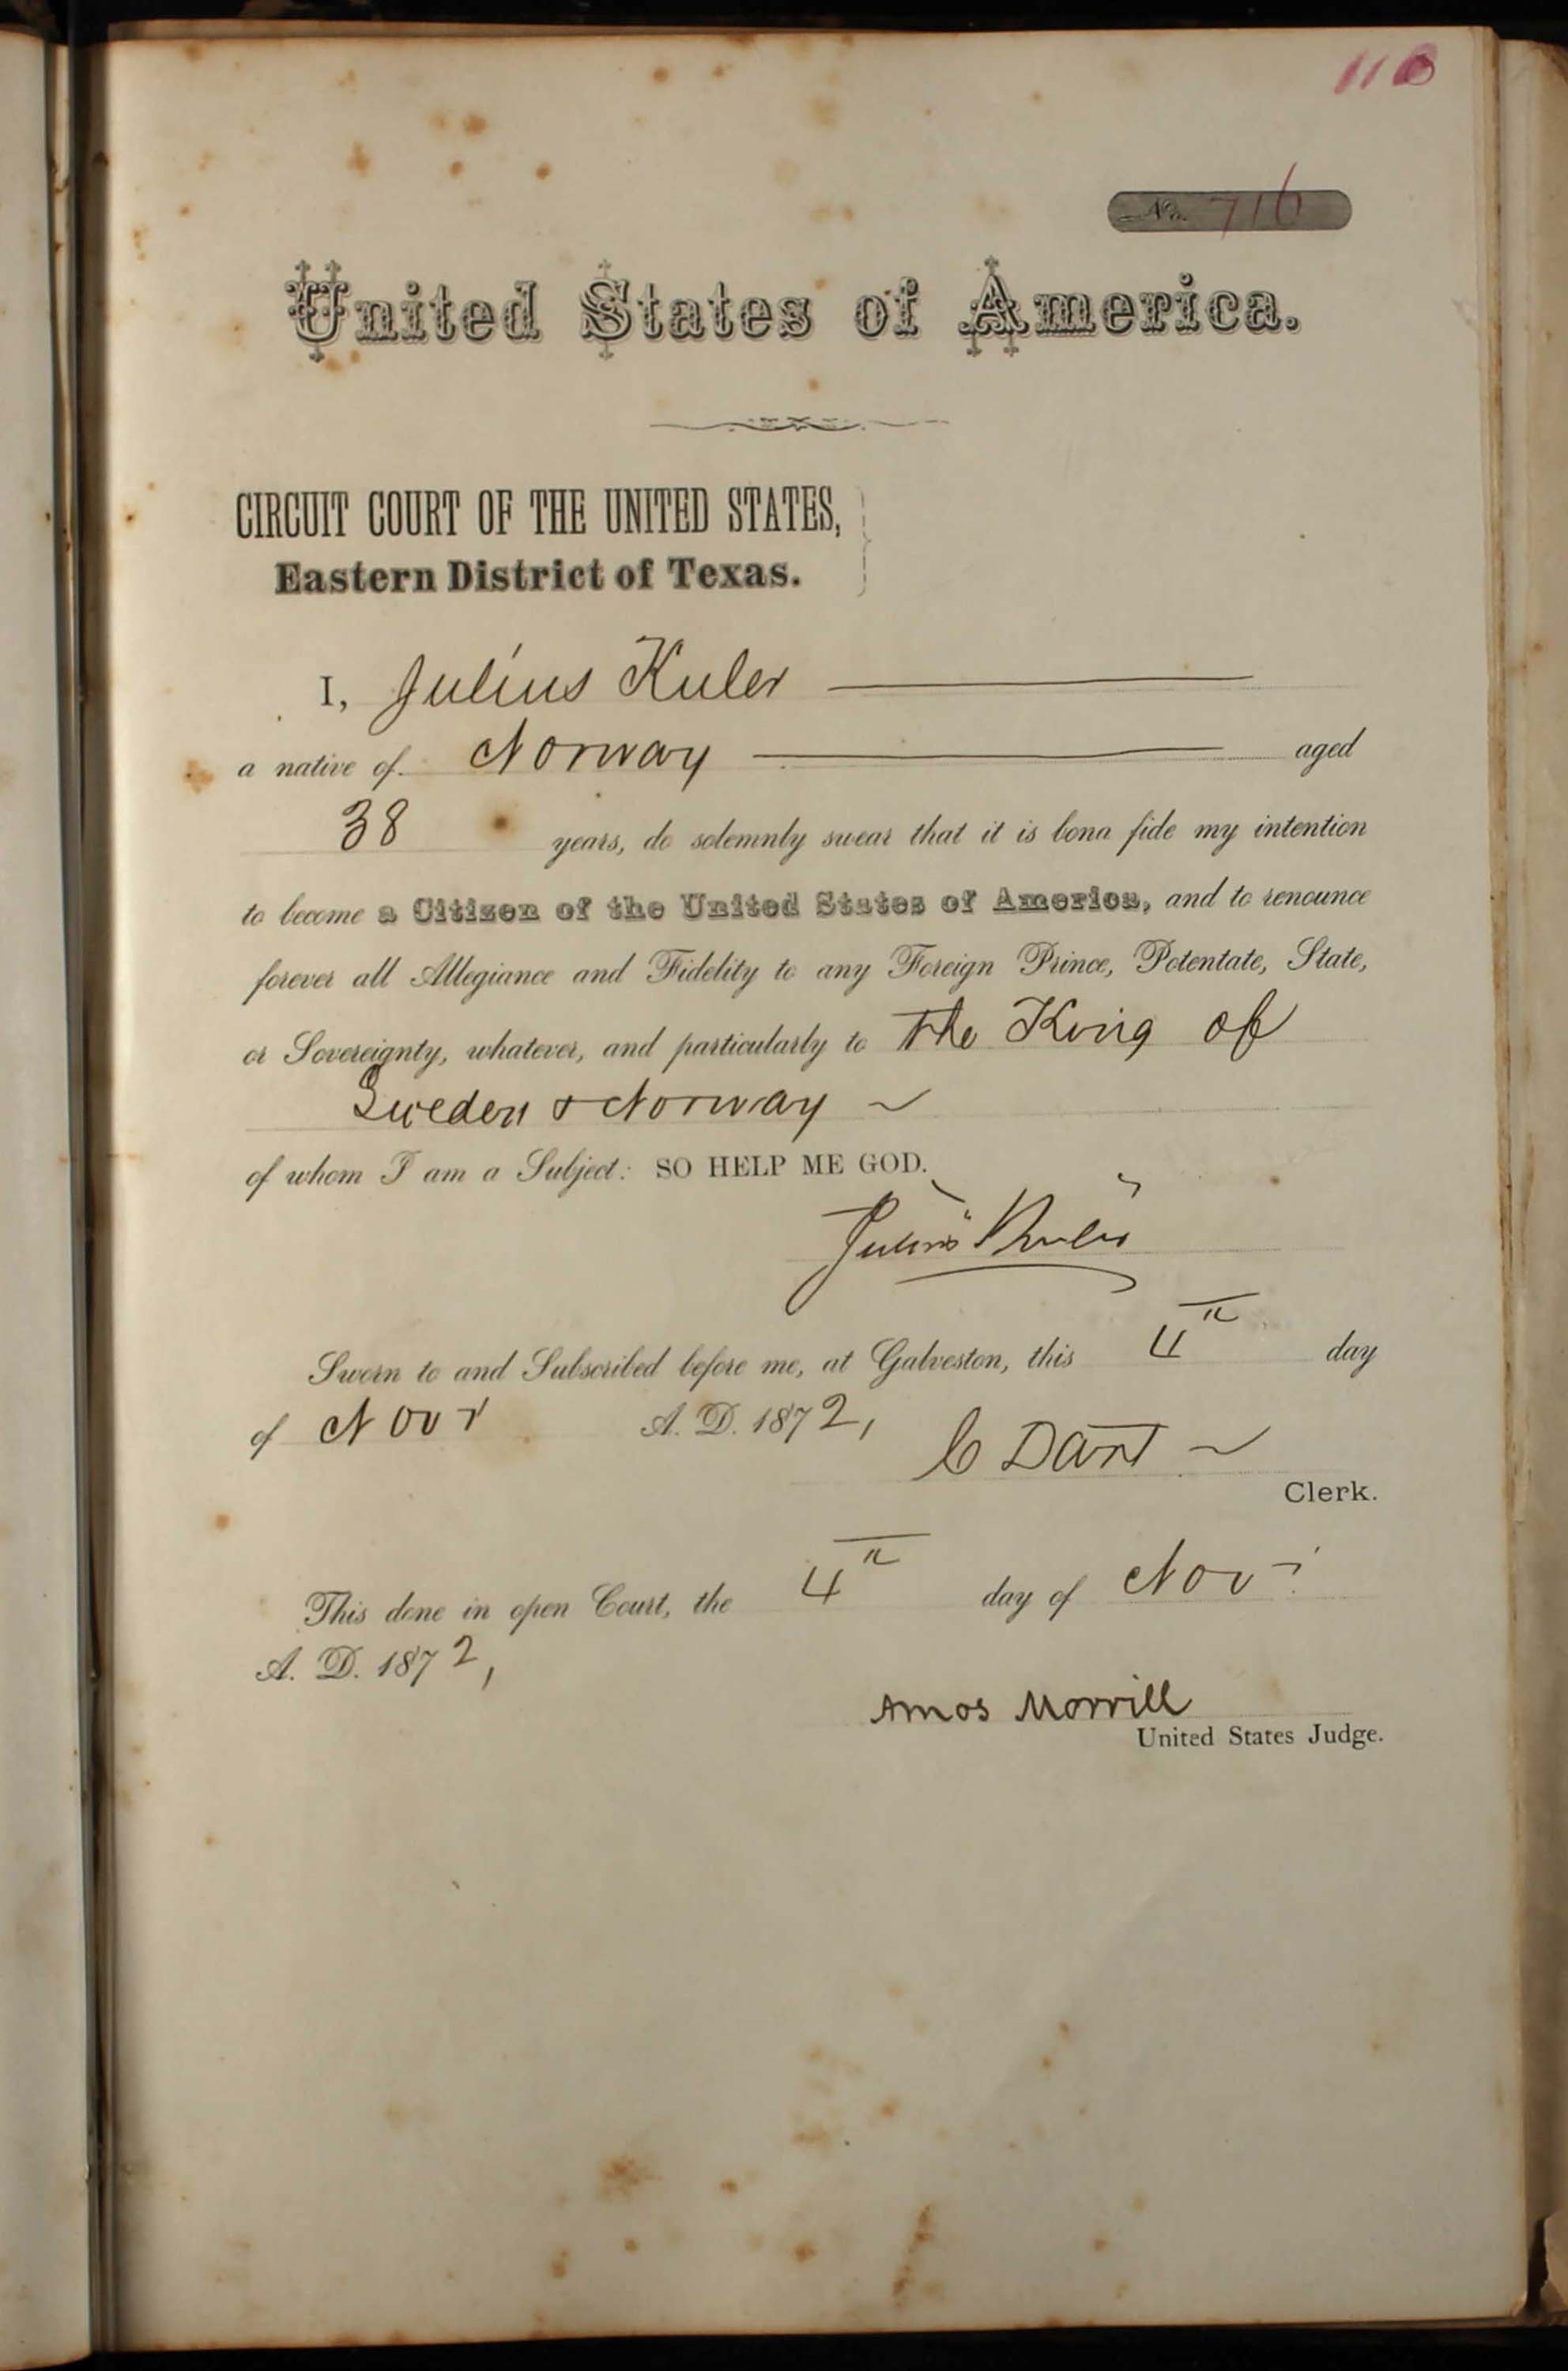 No. 716
United States of America.
CIRCUIT COURT OF THE UNITED STATES,
Eastern District of Texas.
I, Julius Kuler
a native of Norway aged
38 years, do solemnly swear that it is bona fide my intention
to become a Citizen of the United States of America, and to renounce
forever all Allegiance and Fidelity to any Foreign Prince, Potentate, State,
or Sovereignty, whatever, and particularly to the King of
Sweden & Norway
of whom I am a Subject: SO HELP ME GOD.
Julius Kuler
Sworn to and Subscribed before me, at Galveston, this 4th day
of Novr A. D. 1872,
C Dart
Clerk.
This done in open Court, the 4th day of Novr
A. D. 1872,
Amos Morrill
United States Judge.